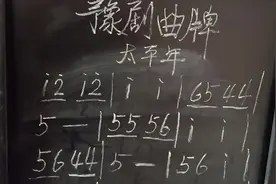 豫剧曲牌
太平年
i̇2̇ i̇2̇ | i̇ i̇ | 6544 |
5 — | 5556 | i̇ i̇ |
5644 | 5 — | 56 i̇ |